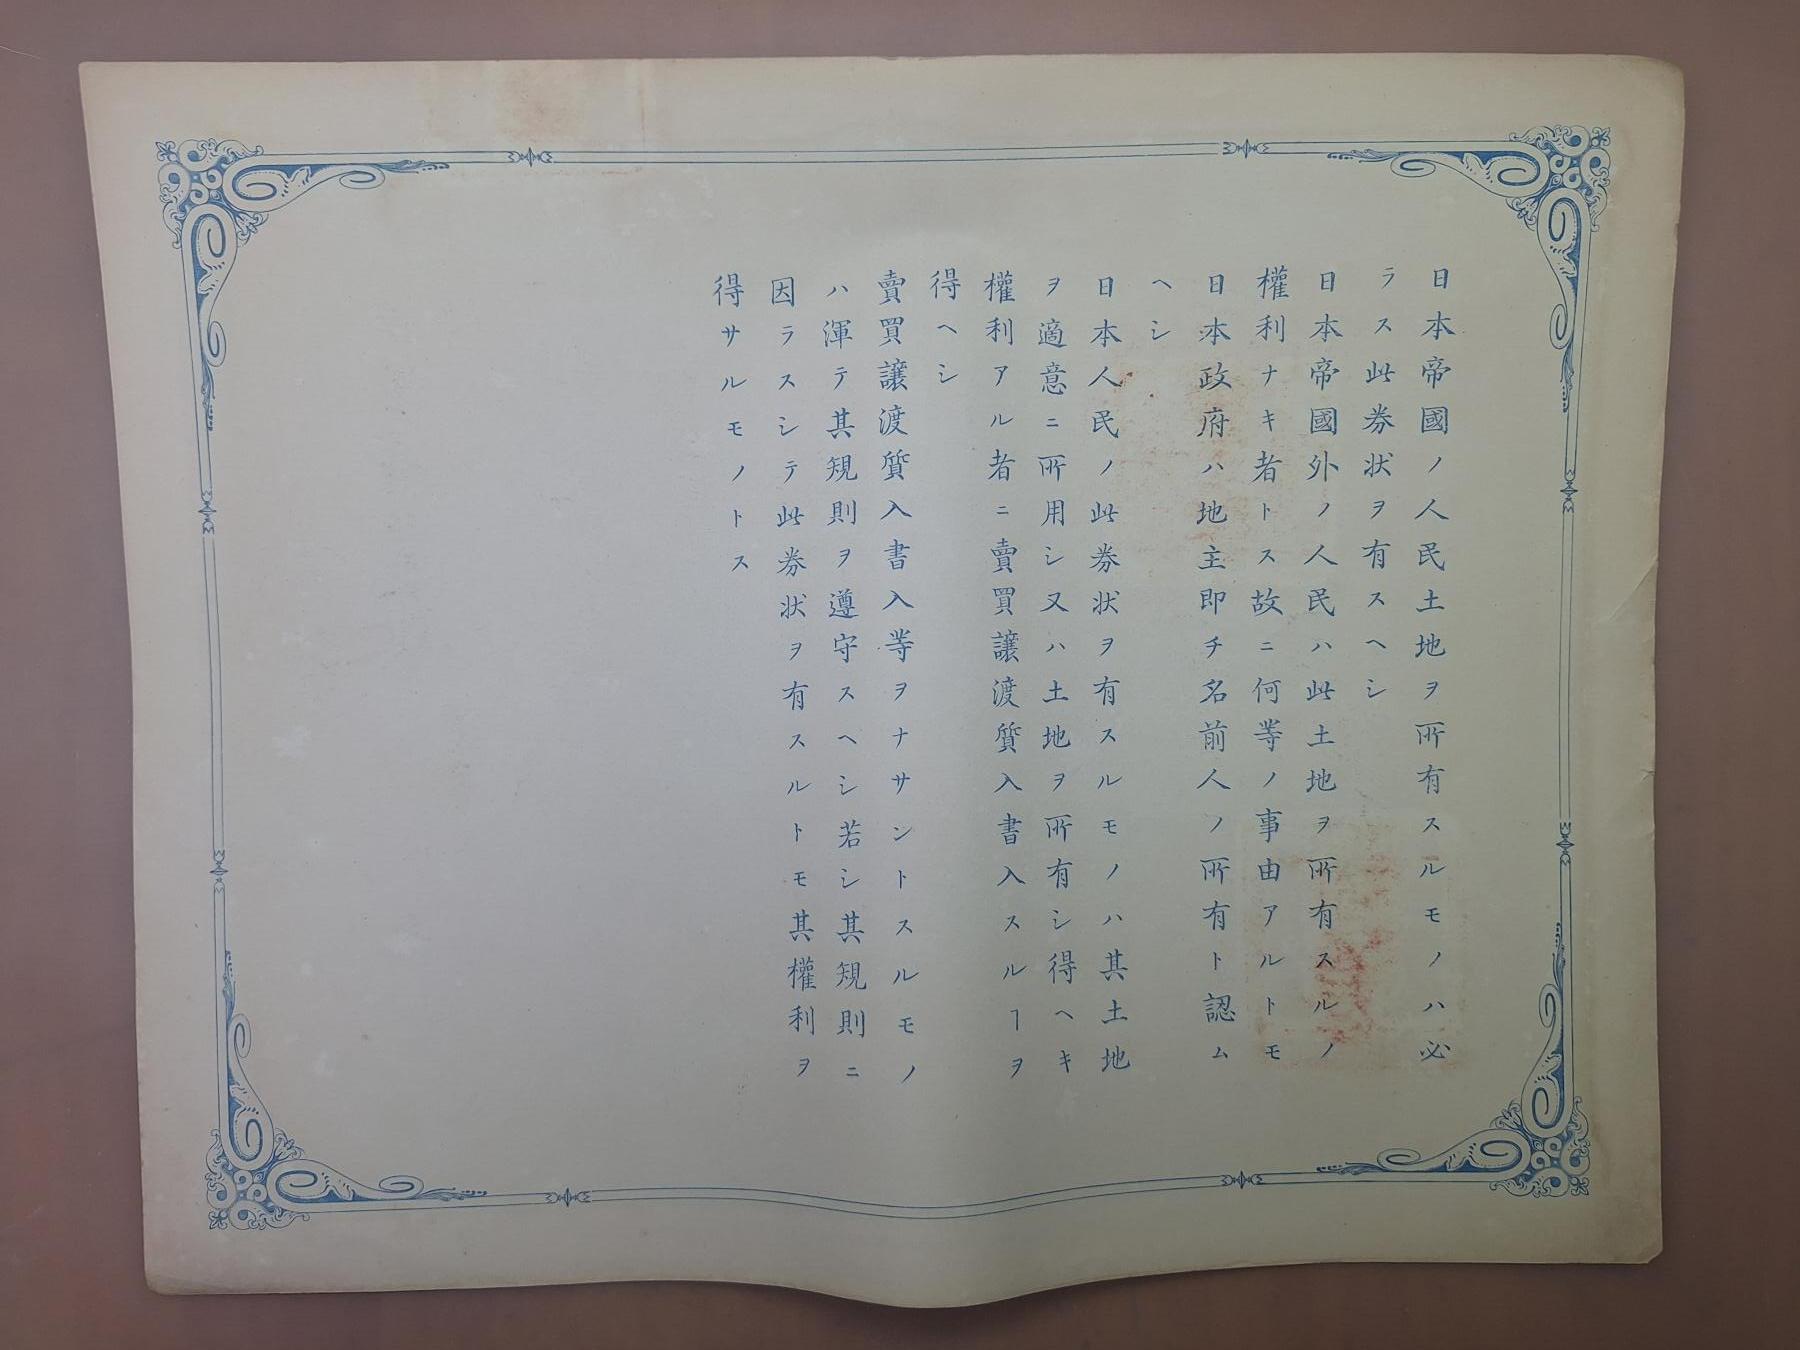 日本帝國ノ人民土地ヲ所有スルモノハ必
ラス此券状ヲ有スヘシ
日本帝國外ノ人民ハ此土地ヲ所有スルノ
權利ナキ者トス故ニ何等ノ事由アルトモ
日本政府ハ地主即チ名前人ノ所有ト認ム
ヘシ
日本人民ノ此券状ヲ有スルモノハ其土地
ヲ適意ニ所用シ又ハ土地ヲ所有シ得ヘキ
權利アル者ニ賣買讓渡質入書入スルヿヲ
得ヘシ
賣買讓渡質入書入等ヲナサントスルモノ
ハ渾テ其規則ヲ遵守スヘシ若シ其規則ニ
因ラスシテ此券状ヲ有スルトモ其權利ヲ
得サルモノトス